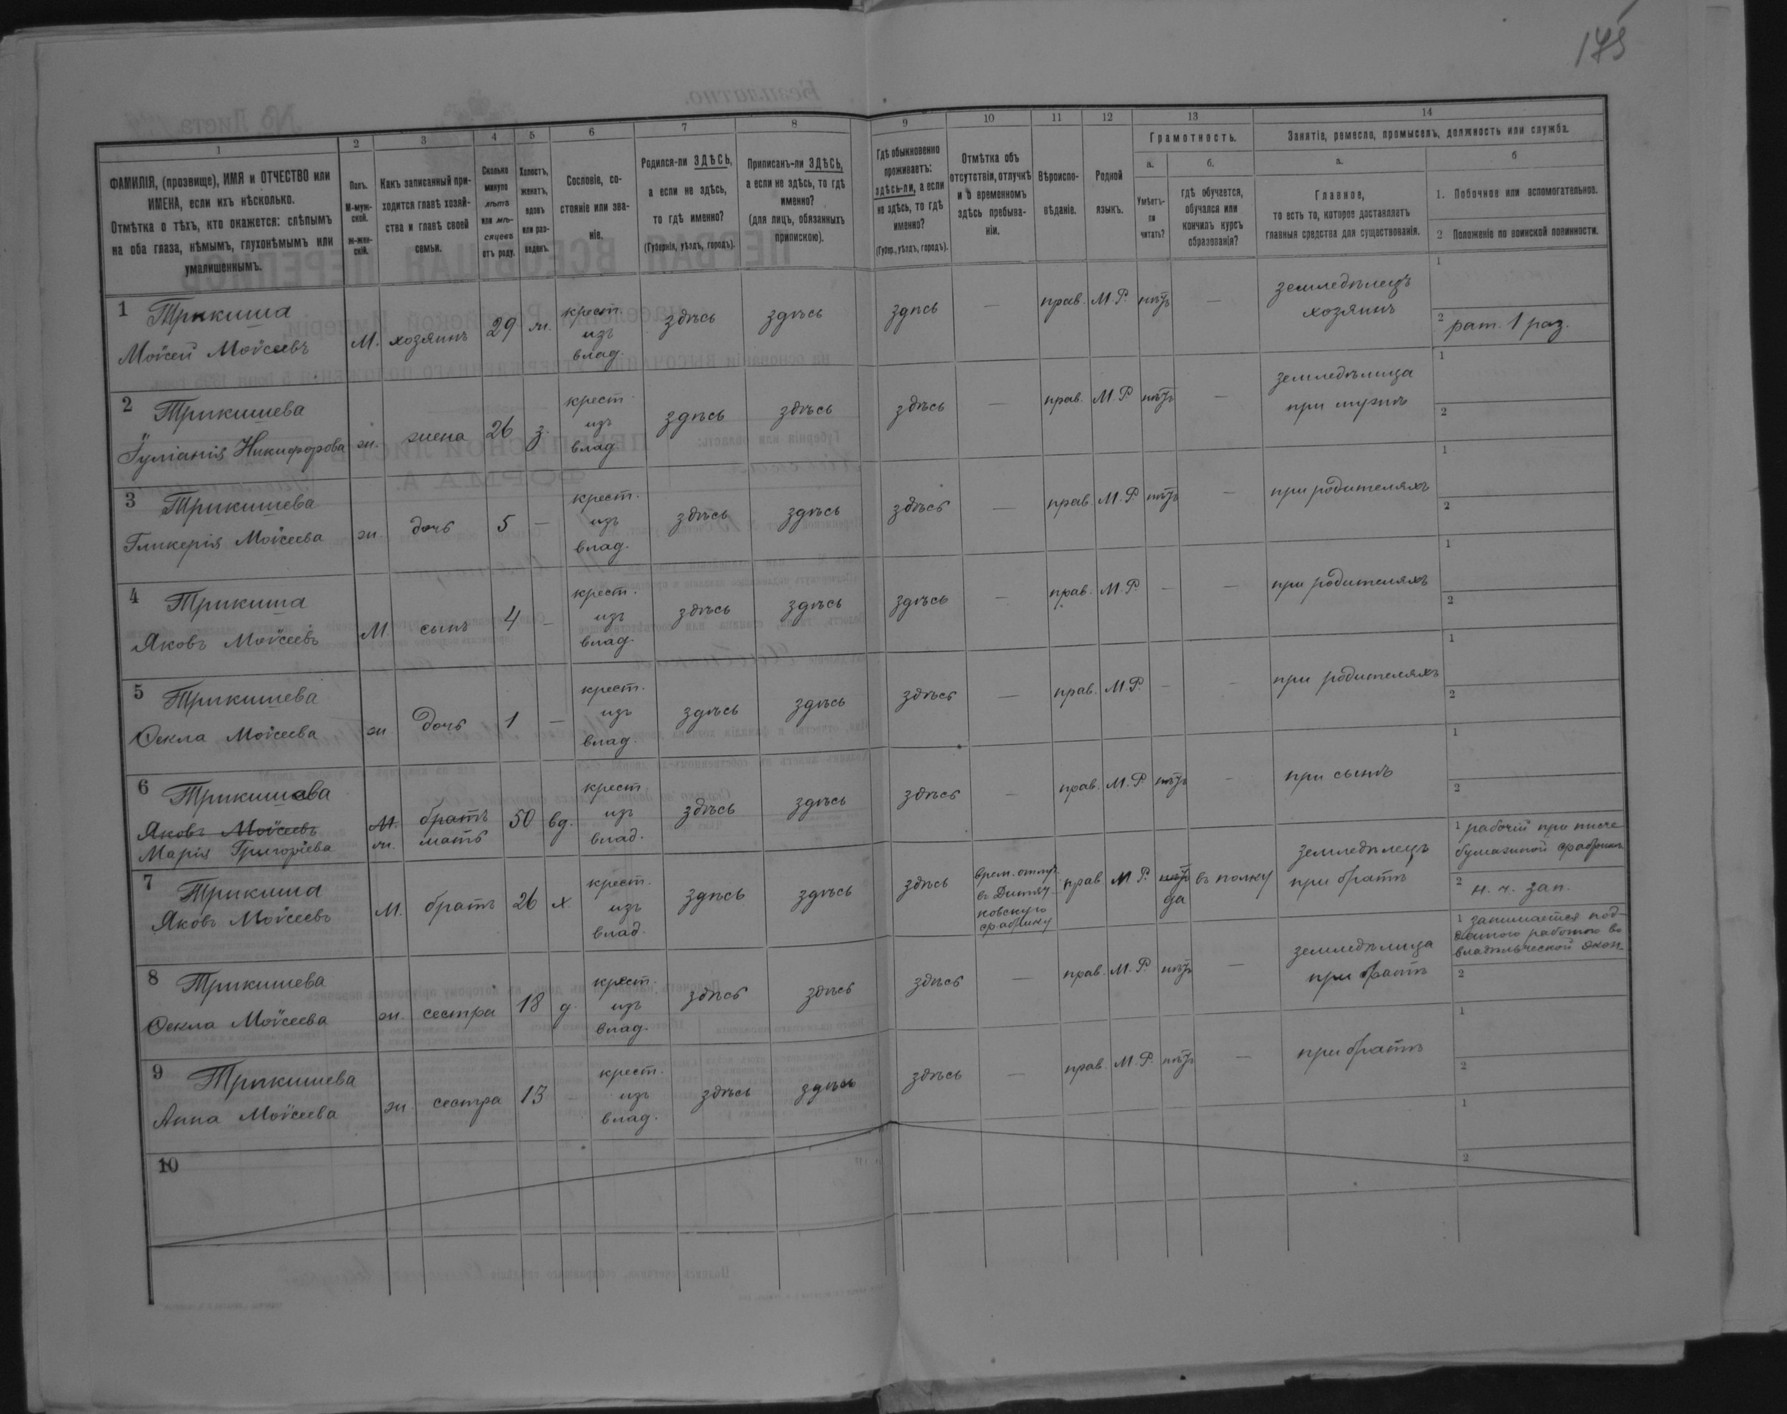 175
1
2
3
4
5
6
7
8
9
10
11
12
13
14
ФАМИЛІЯ, (прозвище), ИМЯ и ОТЧЕСТВО или
ИМЕНА, если ихъ нѣсколько.
Отмѣтка о тѣхъ, кто окажется: слѣпымъ
на оба глаза, нѣмымъ, глухонѣмымъ или
умалишеннымъ.
Полъ.
М-муж-
ской.
ж-жен-
скій.
Какъ записанный при-
ходится главѣ хозяй-
ства и главѣ своей
семьи.
Сколько
минуло
лѣтъ
или мѣ-
сяцевъ
отъ роду.
Холостъ,
женатъ,
вдовъ
или раз-
веденъ.
Сословіе, со-
стояніе или зва-
ніе.
Родился-ли ЗДѢСЬ,
а если не здѣсь,
то гдѣ именно?
(Губернія, уѣздъ, городъ).
Приписанъ-ли ЗДѢСЬ,
а если не здѣсь, то гдѣ
именно?
(для лицъ, обязанныхъ
припискою).
Гдѣ обыкновенно
проживаетъ:
здѣсь-ли, а если
не здѣсь, то гдѣ
именно?
(Губер., уѣздъ, городъ).
Отмѣтка объ
отсутствіи, отлучкѣ
и о временномъ
здѣсь пребыва-
ніи.
Вѣроиспо-
вѣданіе.
Родной
языкъ.
Грамотность.
а.
Умѣетъ-
ли
читать?
б.
гдѣ обучается,
обучался или
кончилъ курсъ
образованія?
Занятіе, ремесло, промыселъ, должность или служба.
а.
Главное,
то есть то, которое доставляетъ
главныя средства для существованія.
б
1. Побочное или вспомогательное.
2 Положеніе по воинской повинности.
1 Трикиша
Мойсей Мойсеевъ
М. хозяинъ 29 ж. крест. изъ влад. здѣсь здѣсь здѣсь — прав. М.Р. нѣтъ — земледѣлецъ хозяинъ
1
2 рат. 1 раз.
2 Трикишева
Никифорова
ж. жена 26 з. крест. изъ влад здѣсь здѣсь здѣсь — прав. М.Р. нѣтъ — земледѣлица при мужѣ
1
2
3 Трикишева
Гликерія Мойсеева
ж. дочь 5 — крест. изъ влад. здѣсь здѣсь здѣсь — прав. М.Р. нѣтъ — при родителяхъ
1
2
4 Трикиша
Яковъ Мойсеевъ
М сынъ 4 — крест. изъ влад. здѣсь здѣсь здѣсь — прав. М.Р. — — при родителяхъ
1
2
5 Трикишева
Ѳекла Мойсеева
ж дочь 1 — крест. изъ влад. здѣсь здѣсь здѣсь — прав. М.Р. — — при родителяхъ
1
2
6 Трикишева
Яковъ Мойсеевъ
Марія Григоріева
М. ж. братъ мать 50 вд. крест изъ влад. здѣсь здѣсь здѣсь — прав. М.Р. нѣтъ — при сынѣ
1
2
7 Трикиша
Яковъ Мойсеевъ
М. братъ 26 х крест. изъ влад. здѣсь здѣсь здѣсь прав М.Р. нѣтъ да въ полку земледѣлецъ при братѣ
1 рабочій при писче
бумажной фабрикѣ
2 н. ч. зап.
8 Трикишева
Ѳекла Мойсеева
ж. сестра 18 д. крест. изъ влад. здѣсь здѣсь здѣсь — прав. М.Р. нѣтъ — земледѣлица при братѣ
1 занимается под-
енною работою во
владѣльческой экон.
2
9 Трикишева
Анна Мойсеева
ж. сестра 13 — крест. изъ влад. здѣсь здѣсь здѣсь — прав. М.Р. нѣтъ — при братѣ
1
2
10
1
2